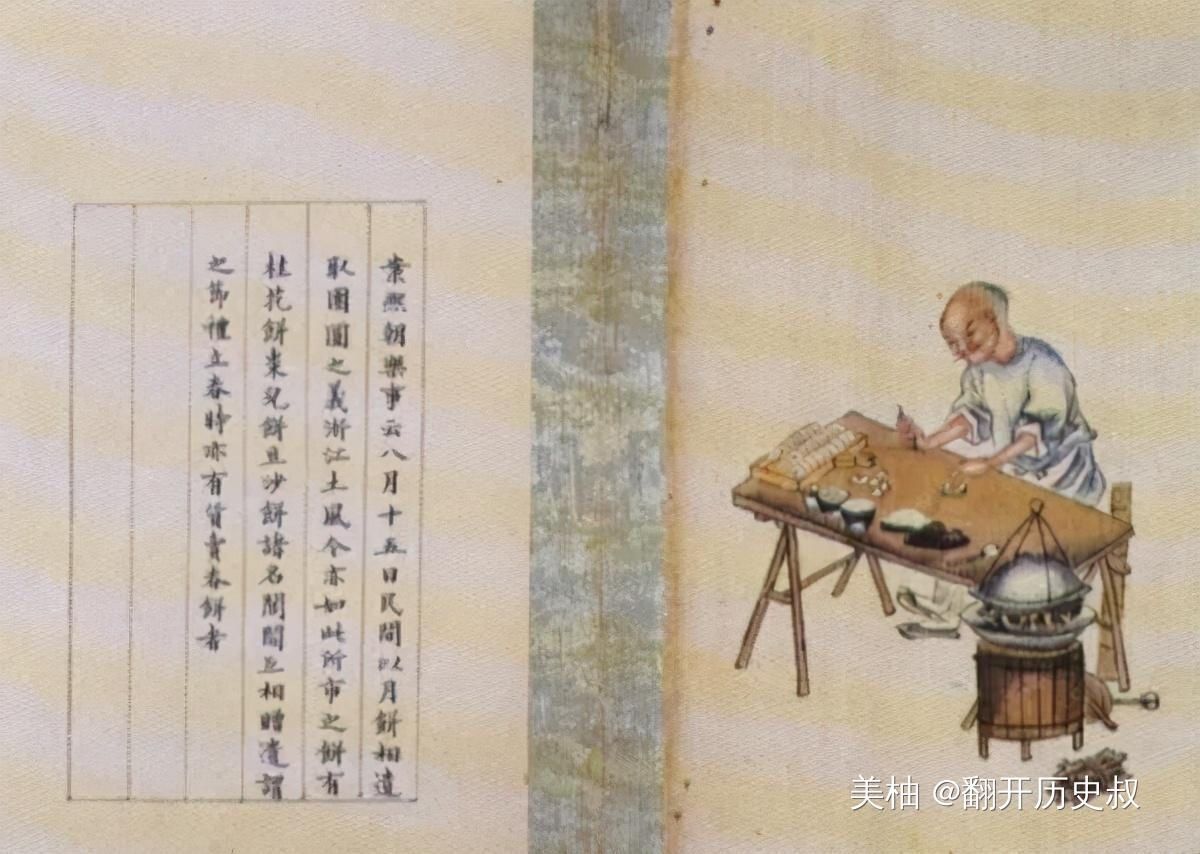 業熈朝樂事云八月十五日民間以月餅相遺
取團圓之義浙江土風今亦如此所市之餅有
桂花餅棗兒餅豆沙餅諸名閭閻互相贈遺謂
之節禮立春時亦有貨賣春餅者
美柚 @翻开历史叔